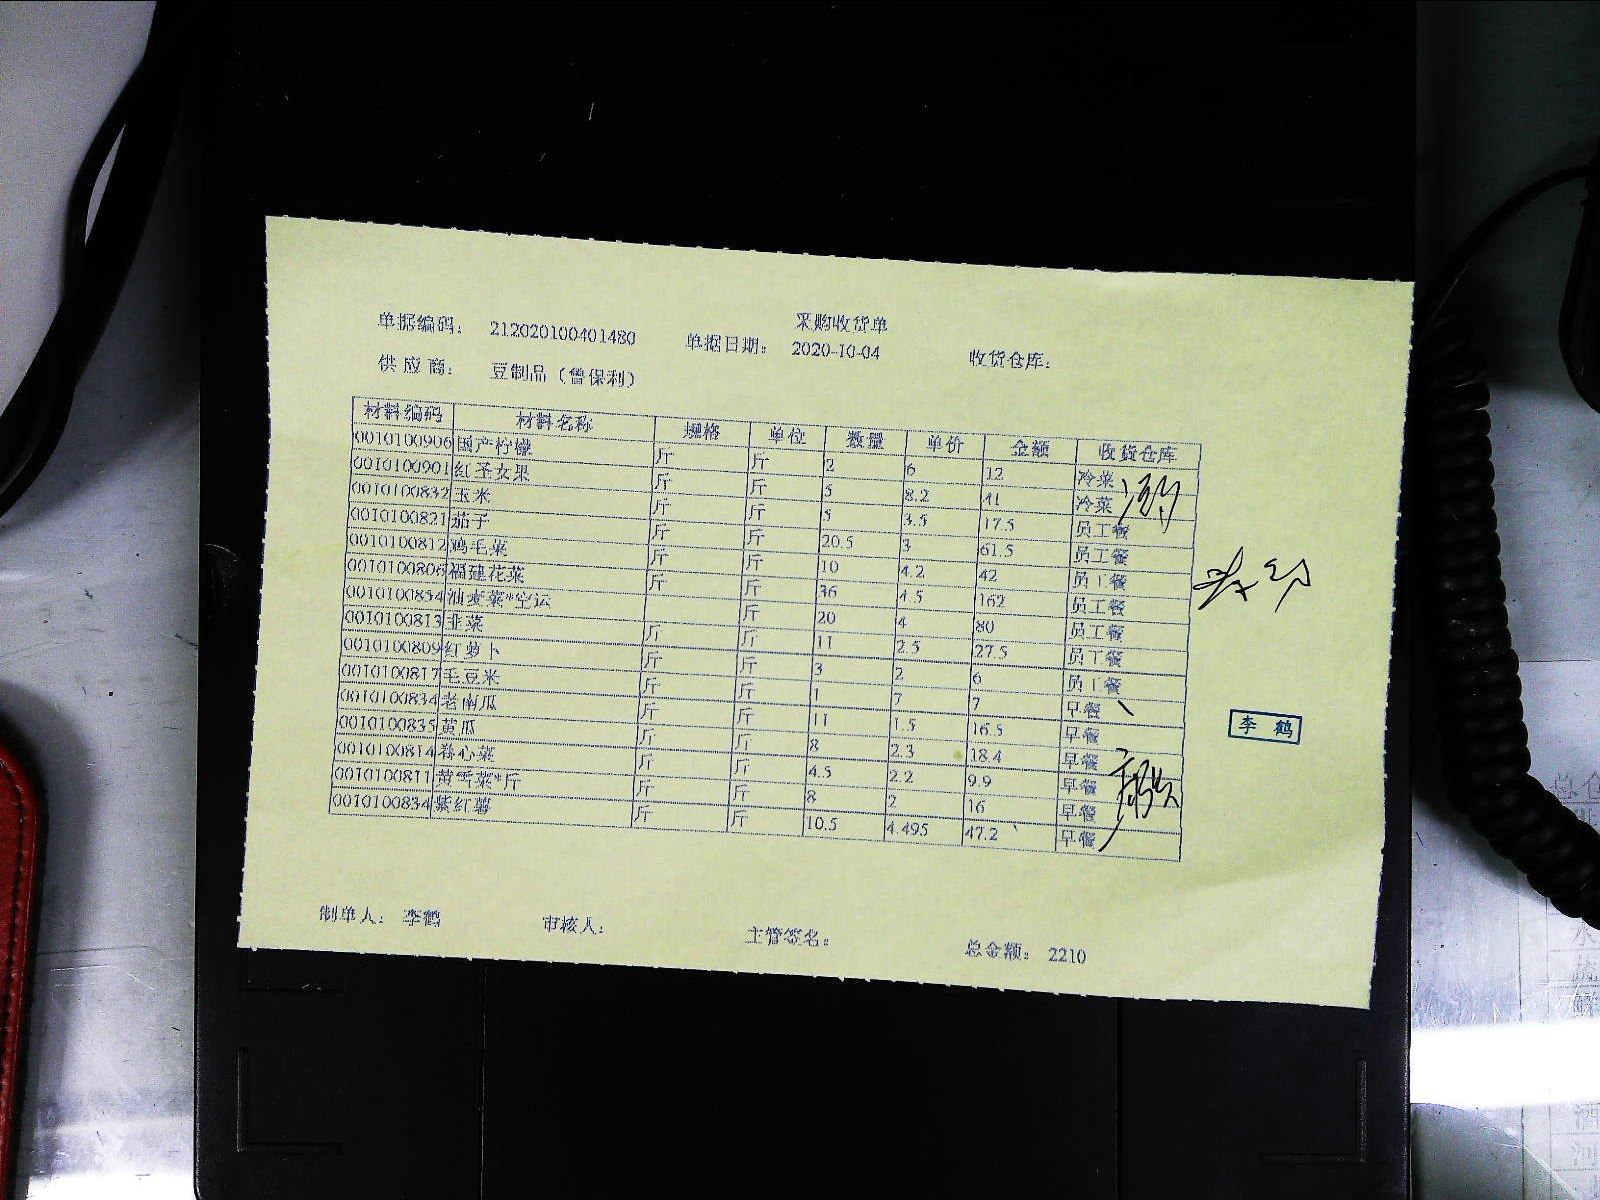 采购收货单
单据编码： 212020100401480 单据日期： 2020-10-04 收货仓库：
供 应 商： 豆制品（鲁保利）
材料编码 材料名称 规格 单位 数量 单价 金额 收货仓库
0010100906 国产柠檬 斤 斤 2 6 12 冷菜
0010100901 红圣女果 斤 斤 5 8.2 41 冷菜
0010100832 玉米 斤 斤 5 3.5 17.5 员工餐
0010100821 茄子 斤 斤 20.5 3 61.5 员工餐
0010100812 鸡毛菜 斤 斤 10 4.2 42 员工餐
0010100806 福建花菜 斤 斤 36 4.5 162 员工餐
0010100854 油麦菜*空运 斤 20 4 80 员工餐
0010100813 韭菜 斤 斤 11 2.5 27.5 员工餐
0010100809 红萝卜 斤 斤 3 2 6 员工餐
0010100817 毛豆米 斤 斤 1 7 7 早餐
0010100834 老南瓜 斤 斤 11 1.5 16.5 早餐
0010100835 黄瓜 斤 斤 8 2.3 18.4 早餐
0010100814 卷心菜 斤 斤 4.5 2.2 9.9 早餐
0010100811 黄芽菜*斤 斤 斤 8 2 16 早餐
0010100834 紫红薯 斤 斤 10.5 4.495 47.2 早餐
李 鹤
制单人： 李鹤 审核人： 主管签名： 总金额： 2210